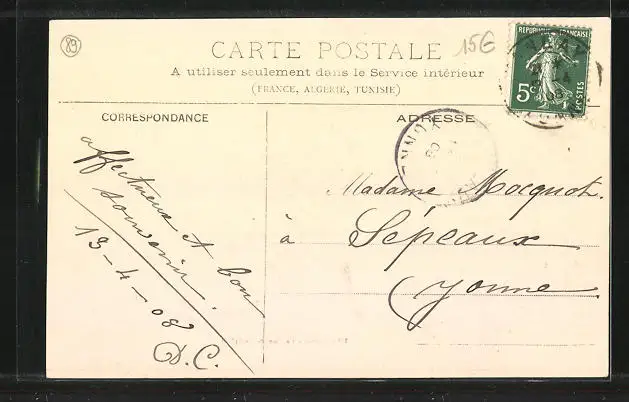 89
15€
CARTE POSTALE
A utiliser seulement dans le Service intérieur
(FRANCE, ALGERIE, TUNISIE)
REPUBLIQUE FRANÇAISE
5c
POSTES
CORRESPONDANCE
ADRESSE
affectueux et bon
souvenir.
19-4-08
D.C.
Madame Mocquot.
à Sépeaux
Yonne.